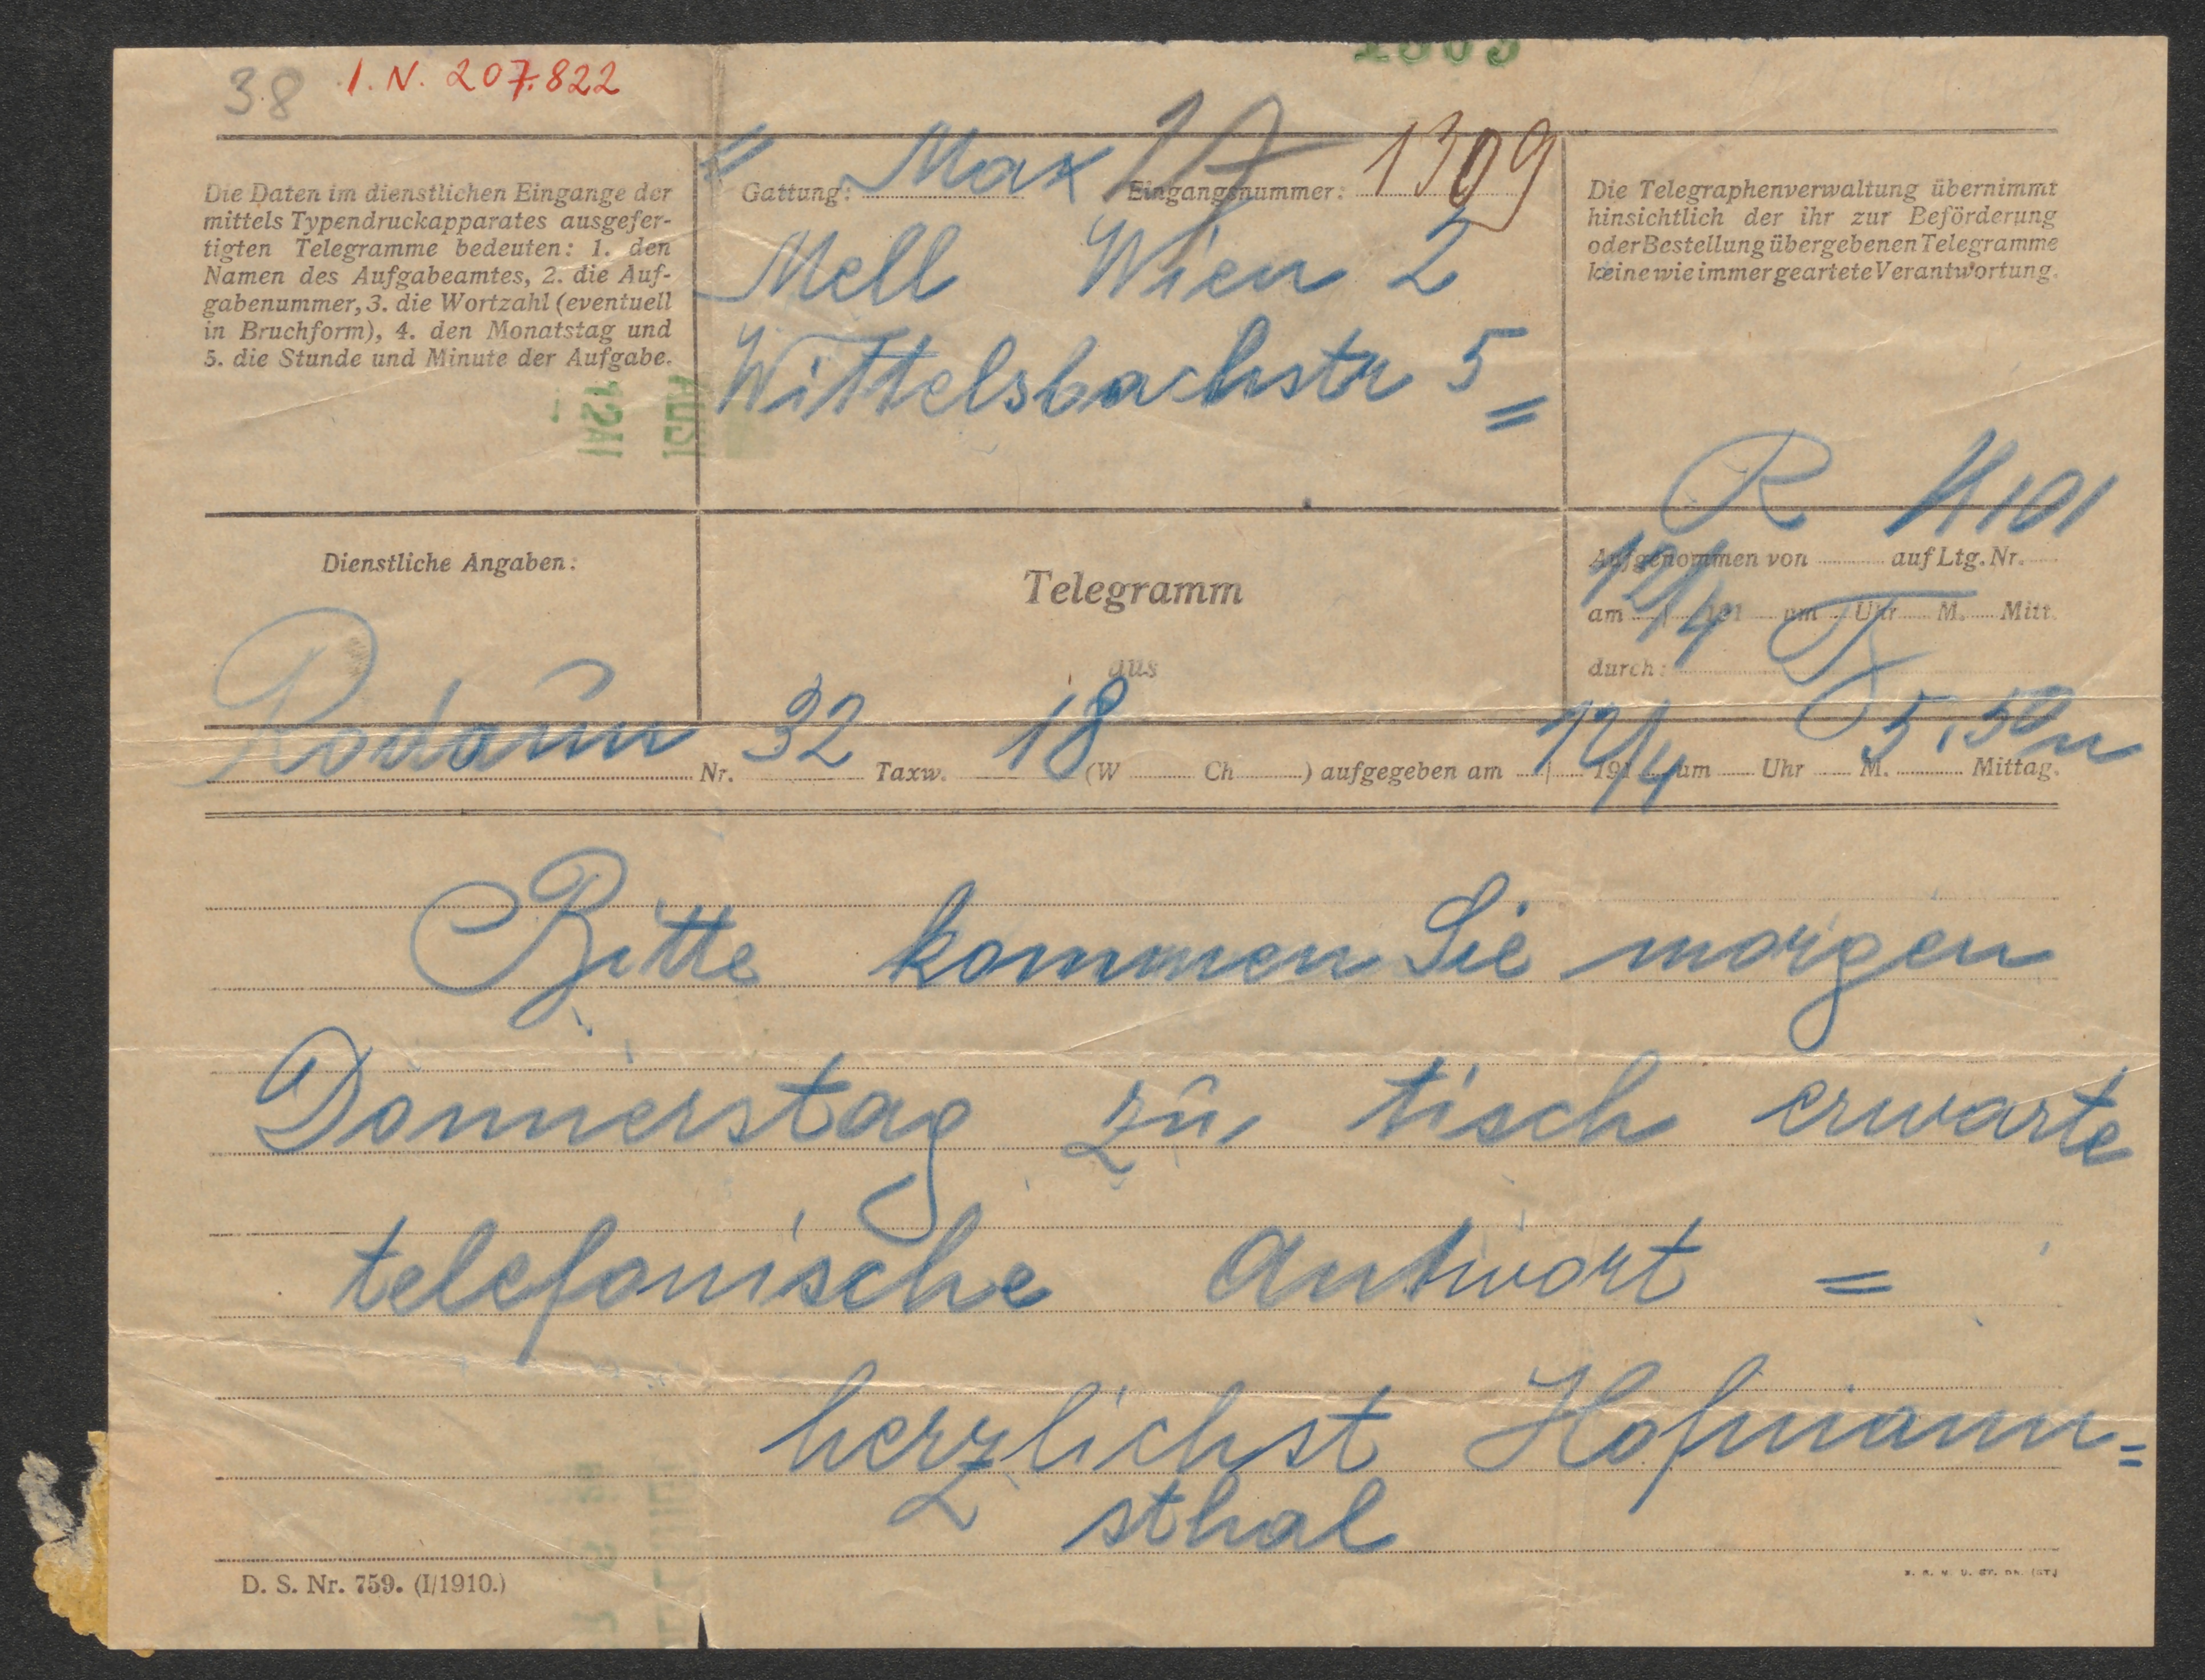 38 I. N. 207.822
Die Daten im dienstlichen Eingange der
mittels Typendruckapparates ausgefer-
tigten Telegramme bedeuten: 1. den
Namen des Aufgabeamtes, 2. die Auf-
gabenummer, 3. die Wortzahl (eventuell
in Bruchform), 4. den Monatstag und
5. die Stunde und Minute der Aufgabe.
Gattung: Max Eingangsnummer: 1309
Mell Wien 2
Wittelsbachstr 5 =
Die Telegraphenverwaltung übernimmt
hinsichtlich der ihr zur Beförderung
oder Bestellung übergebenen Telegramme
keine wie immer geartete Verantwortung.
Dienstliche Angaben:
Telegramm
aus
R H101
Aufgenommen von auf Ltg. Nr.
am 12/4 191 um Uhr M. Mitt.
durch:
Rodaun Nr. 32 Taxw. 18 (W Ch ) aufgegeben am 12/4 191 um Uhr 5,50 M. n Mittag.
Bitte kommen Sie morgen
Donnerstag zu tisch erwarte
telefonische antwort =
herzlichst Hofmann=
sthal
D. S. Nr. 759. (I/1910.)